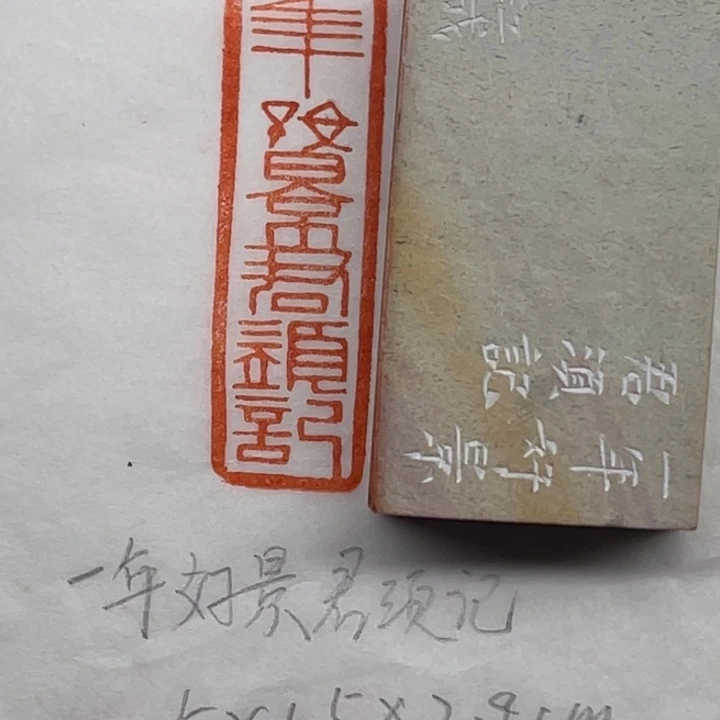 年好景君須記
一年好景
君須記
一年好景君须记
5×1.5×2.8cm